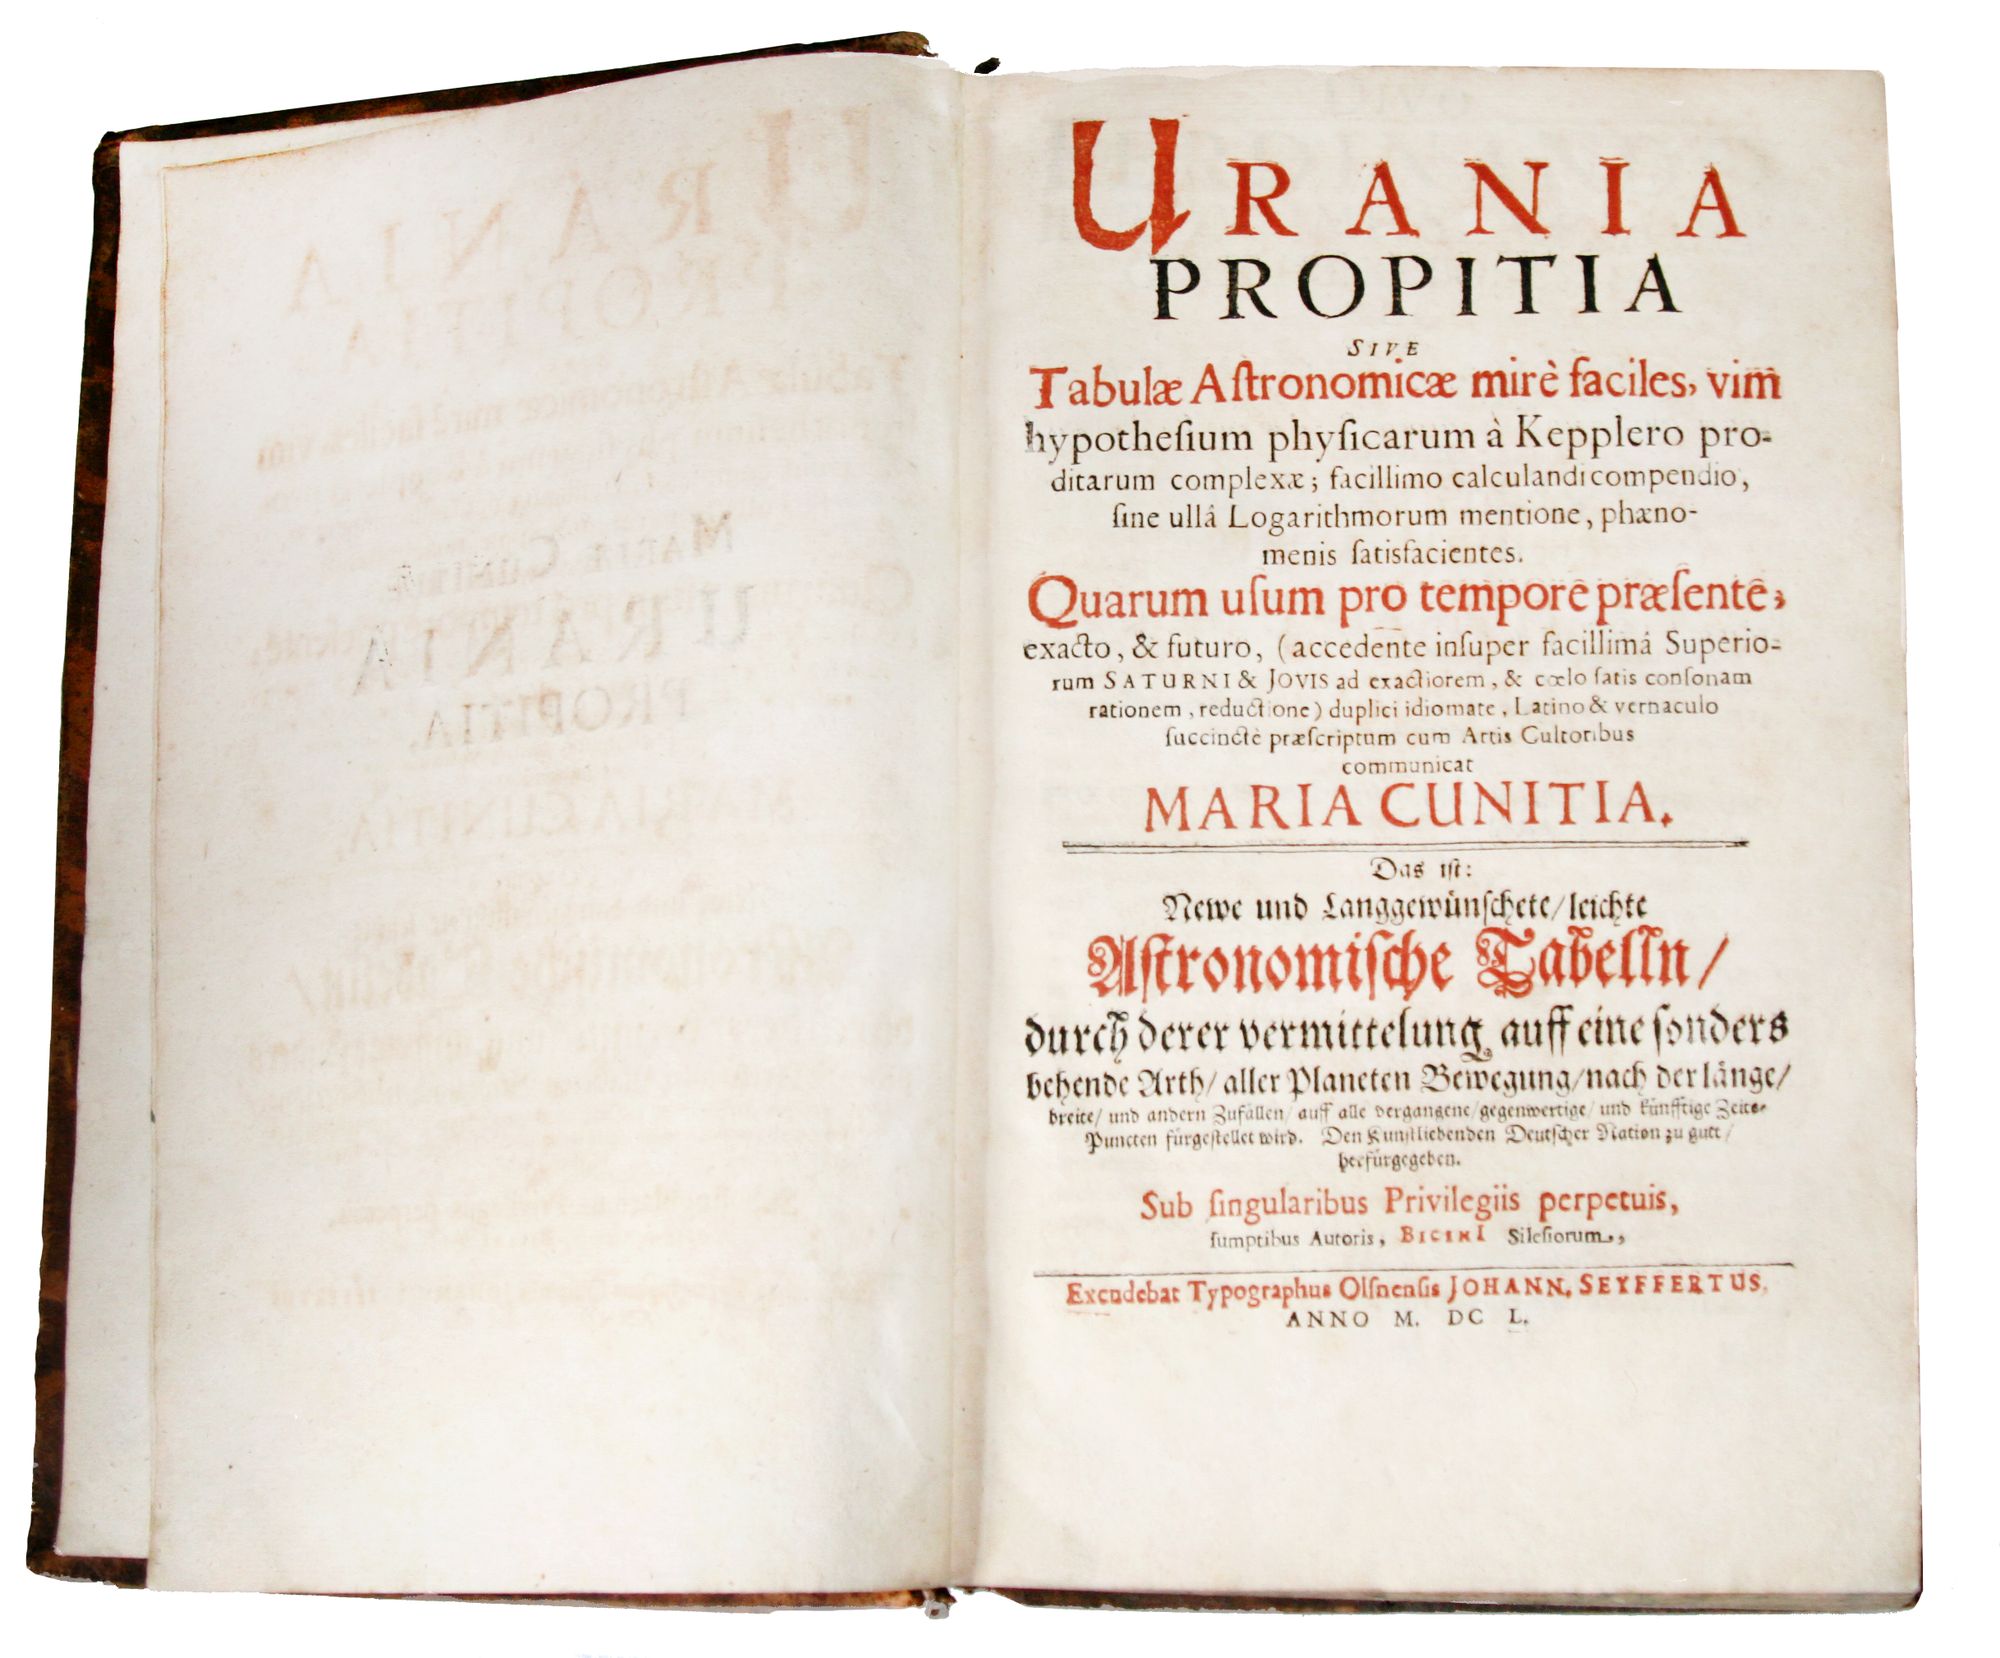 URANIA
PROPITIA
SIVE
Tabulæ Aſtronomicæ mirè faciles, vim
hypotheſium phyſicarum à Kepplero pro-
ditarum complexæ; facillimo calculandi compendio,
ſine ullâ Logarithmorum mentione, phæno-
menis ſatisfacientes.
Quarum uſum pro tempore præſente,
exacto, & futuro, (accedente inſuper facillimâ Superio-
rum SATURNI & JOVIS ad exactiorem, & cœlo ſatis conſonam
rationem, reductione) duplici idiomate, Latino & vernaculo
ſuccinctè præſcriptum cum Artis Cultoribus
communicat
MARIA CUNITIA.
Das iſt:
Newe und Langgewünſchete/ leichte
Aſtronomiſche Tabelln/
durch derer vermittelung auff eine ſonders
behende Arth/ aller Planeten Bewegung/ nach der länge/
breite/ und andern Zufällen/ auff alle vergangene/ gegenwertige/ und künfftige Zeits-
Puncten fürgeſtellet wird. Den Kunſtliebenden Deutſcher Nation zu gutt/
herfürgegeben.
Sub ſingularibus Privilegiis perpetuis,
ſumptibus Autoris, BICINI Sileſiorum,
Excudebat Typographus Olſnenſis JOHANN. SEYFFERTUS.
ANNO M. DC L.